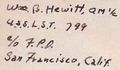 Wm B. Hewitt, QM 1/c
U.S.S. L.S.T. 799
c/o F.P.O.
San Francisco, Calif.